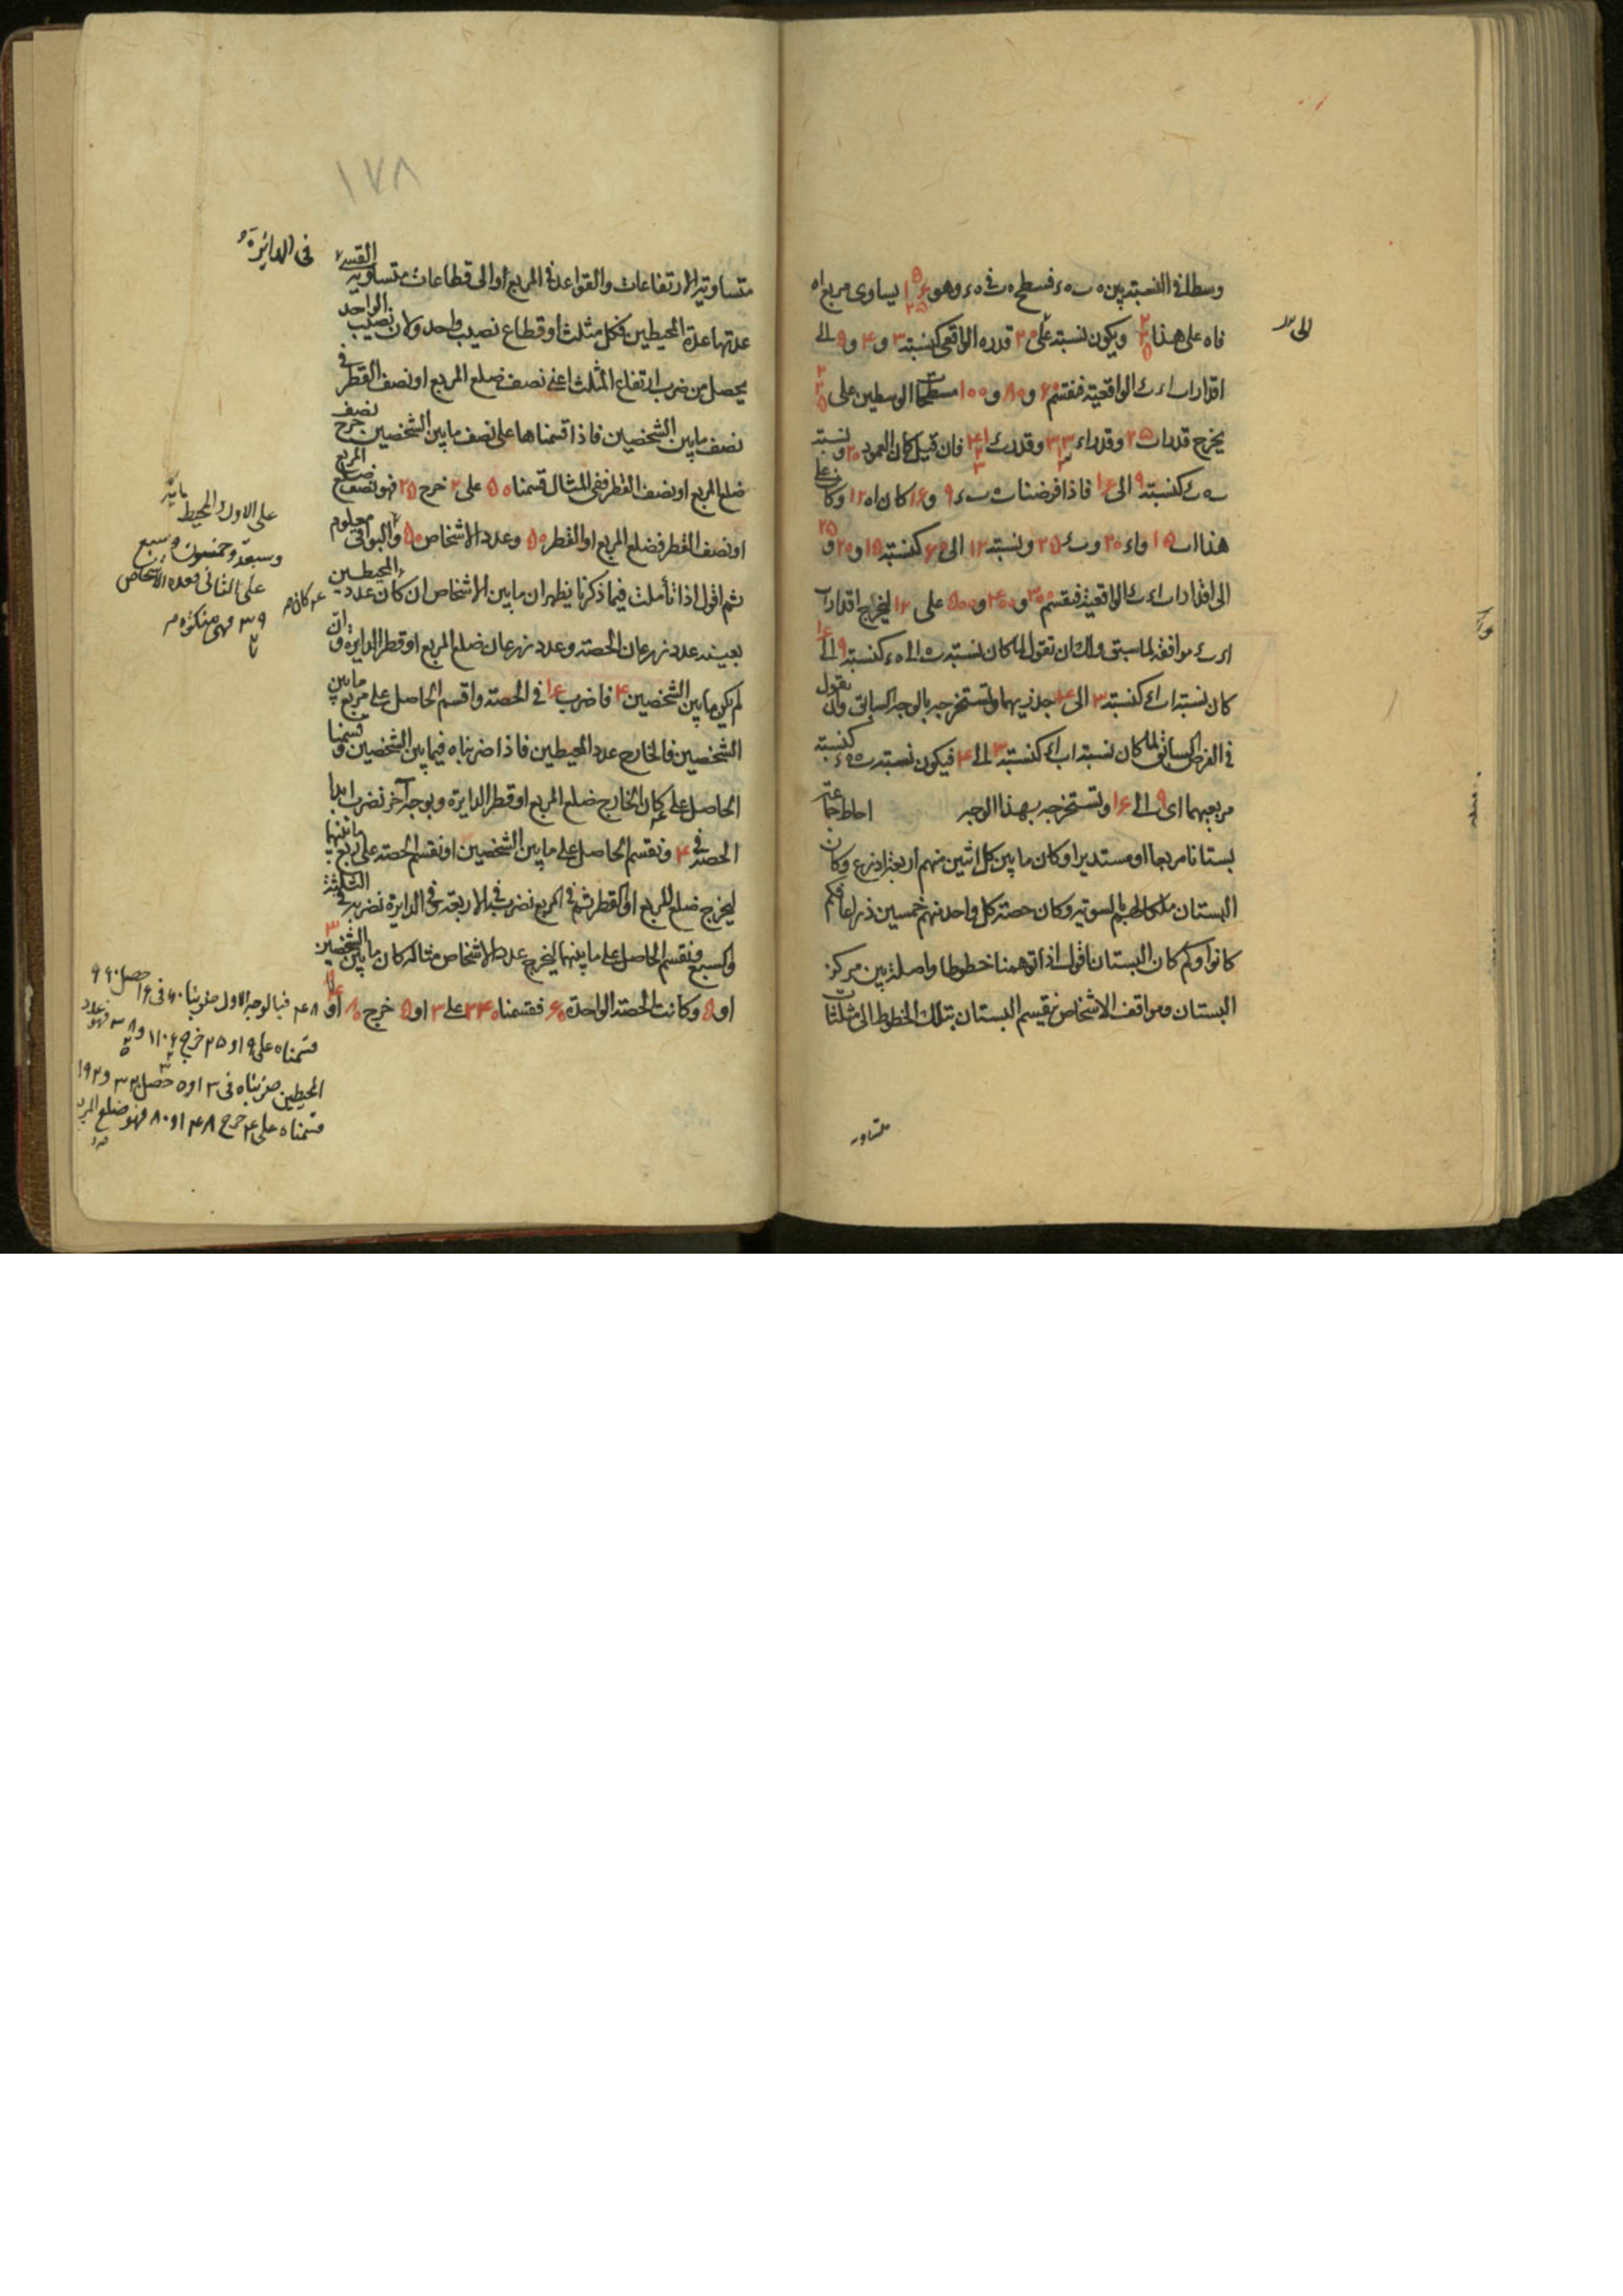 وسطا فى النسبة بين ه ب ه ء فسطح ه ب فى ه ء وهو يساوى مربع اه
فاه على هذا ويكون نسبة على ٢٠ قدره الواقعى كنسبة ٣ و ۴ و ۵ الى
اقدار اب اء ب ء الواقعية فنقسم ۶۰ و ۸۰ و ۱۰۰ مسطحات الوسطين على
يخرج قدر اب ٢۵ وقدر اء ٣٣ وقدر ب ء ۴۱ فان قيل كان العمود ٢٠ ونسبة
كنسبة ۹ الى ۱۶ فاذا فرضنا ب ه ه ء ۹ و ۱۶ كان اه ۱٢ وكان على
هذا اب ۱۵ واء ٢٠ وب ء ٢۵ ونسبة ۱٢ الى ٢٠ كنسبة ۱۵ و ٢٠ و ٢۵
الى اقدار اب اء ب ء الواقعية فنقسم ٣۰۰ و ۴۰۰ و ۵۰۰ على ۱٢ ليخرج اقدار اب
اء ب ء موافقة لما سبق ولك ان تقول لما كان نسبة ب ه الى ه ء كنسبة ۹ الى ۱۶
كان نسبة اب اء كنسبة ٣ الى ۴ جذريهما وتستخرجه بالوجه السابق وان نقول
فى الفرض السابق لما كان نسبة اب اء كنسبة ٣ الى ۴ فيكون نسبة ب ه ه ء كنسبة
مربعيهما اى ۹ الى ۱۶ وتستخرجه بهذا الوجه احاط جماعة
بستانا مربعا او مستديرا وكان ما بين كل اثنين منهم اربعة اذرع وكان
البستان ملكا لهم بالسوية وكان حصة كل واحد منهم خمسين ذراعا فكم
كانوا وكم كان البستان فاقول اذا توهمنا خطوطا واصلة بين مركز
البستان ومواقف الاشخاص نقسم البستان بتلك الخطوط الى مثلثات
متساوية
متساوية الارتفاعات والقواعد فى المربع او الى قطاعات متساوية القسى
فى الدائرة
عدتها عدة المحيطين فكل مثلث او قطاع نصيب واحد ولان نصيب الواحد
يحصل من ضرب ارتفاع المثلث اعنى نصف ضلع المربع او نصف القطر فى
نصف ما بين الشخصين فاذا قسمناها على نصف ما بين الشخصين خرج نصف
ضلع المربع او نصف القطر ففى المثال قسمنا ۵۰ على ٢ خرج ٢۵ فهو نصف ضلع المربع
او نصف القطر فضلع المربع او القطر ۵۰ وعدد الاشخاص ۵۰ والبواقى معلوم
ثم اقول اذا تأملت فيما ذكرنا يظهر ان ما بين الاشخاص ان كان عدد المحيطين
بعينه عدد ذرعان الحصة وعدد ذرعان ضلع المربع او قطر الدايرة وان
لم يكن ما بين الشخصين ۴ فاضرب ۱۶ فى الحصة واقسم الحاصل على مربع ما بين
الشخصين فالخارج عدد المحيطين فاذا ضربناه فيما بين الشخصين وقسمنا
الحاصل على ۴ كان الخارج ضلع المربع او قطر الدايرة وبوجه آخر نضرب ابدا
الحصة فى ۴ ونقسم الحاصل على ما بين الشخصين او نقسم الحصة على ربع ما بينهما
ليخرج ضلع المربع او القطر ثم فى المربع نضرب فى الاربعة وفى الدايرة نضربه فى الثلثة
والسبع ونقسم الحاصل على ما بينهما ليخرج عدد الاشخاص مثاله كان ما بين الشخصين ٣
او ۵ وكانت الحصة الواحدة ۶۰ فقسمنا ٢۴۰ على ٣ او ۵ خرج ۸۰ او
۴۸ فبالوجه الاول ضربنا ۶۰ فى ۱۶ حصل ۹۶۰
قسمناه على ۹ او ٢۵ خرج ۱۰۶ و ٣۸ فهو عدد
المحيطين ضربناه فى ٣ او ۵ حصل ٣٢۰ و ۱۹٢
قسمناه على ۴ خرج ۸۰ او ۴۸ فهو ضلع المربع
على الاول والمحيط مائة
وسبعة وخمسون وسبع
على الثانى فعدد الاشخاص